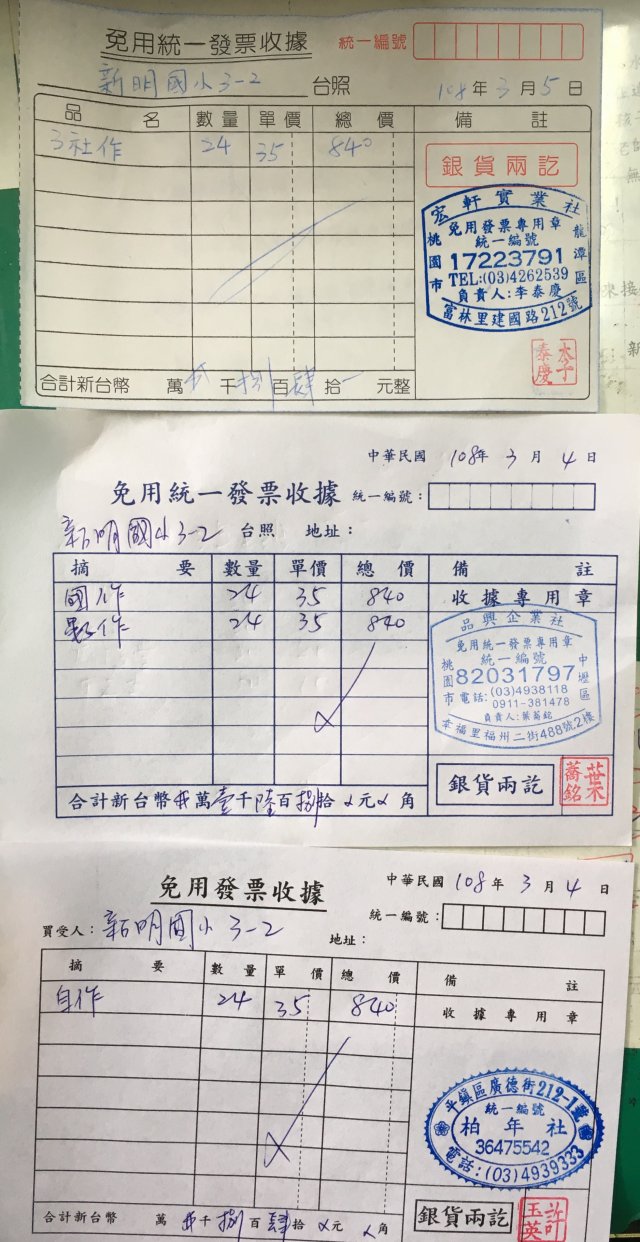 免用統一發票收據 統一編號
新明國小3-2 台照 108年3月5日
品名 數量 單價 總價 備註
3社作 24 35 840
銀貨兩訖
宏軒實業社
免用發票專用章
統一編號
17223791
TEL:(03)4262539
負責人:李泰慶
桃園市 龍潭區
富林里建國路212號
合計新台幣 萬 千捌百肆拾 元整
中華民國 108年3月4日
免用統一發票收據 統一編號:
新明國小3-2 台照 地址:
摘要 數量 單價 總價 備註
國作 24 35 840 收據專用章
數作 24 35 840
品興企業社
免用統一發票專用章
統一編號
82031797
電話:(03)4938118
0911-381478
桃園市 中壢區
幸福里福州二街488號2樓
銀貨兩訖
合計新台幣 萬壹千陸百捌拾 元 角
中華民國 108年3月4日
免用發票收據
統一編號:
買受人: 新明國小3-2
地址:
摘要 數量 單價 總價 備註
自作 24 35 840 收據專用章
平鎮區廣德街212-1號
統一編號
柏年社
36475542
電話:(03)4939333
銀貨兩訖
許玉英
合計新台幣 萬 千捌百肆拾 元 角